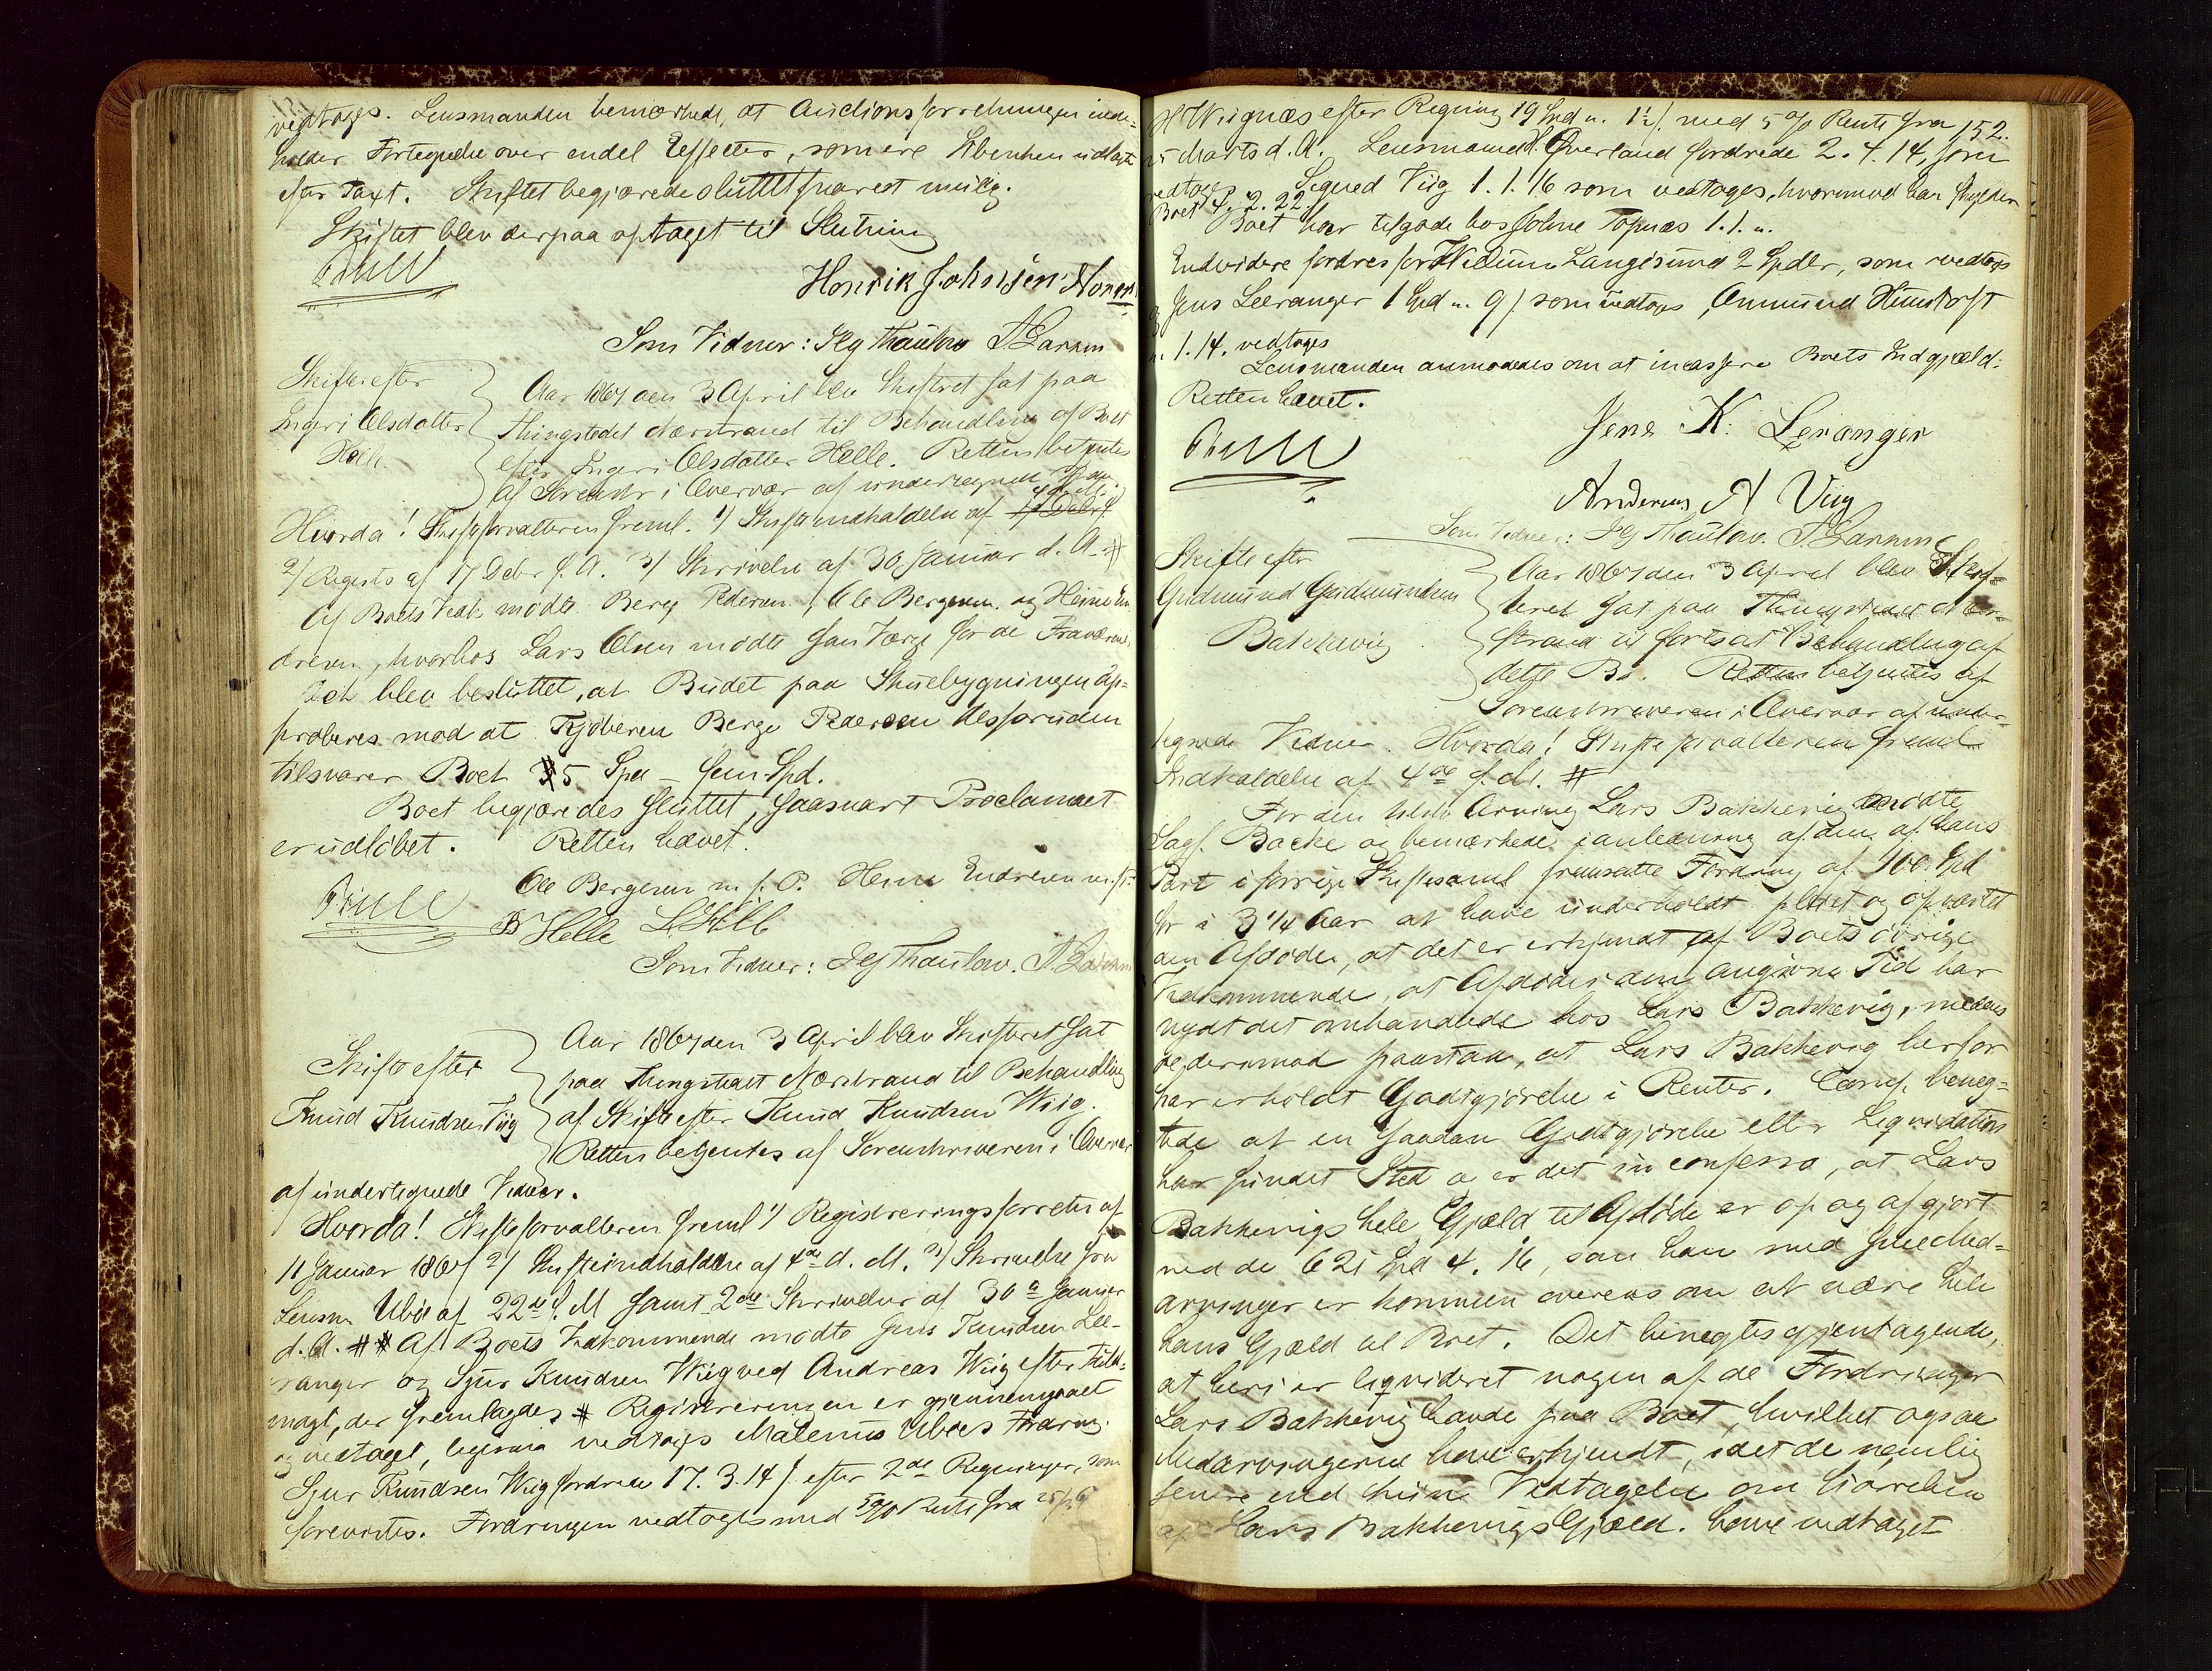 vedtoges. Lensmanden bemærkede, at Auctionsforretningen inde-
holder Fortegnelse over endel Effecter, som ere Enken udlagt
efter Taxt. Skiftet begjæredes sluttet snarest mulig.
Skiftet blev derpaa optaget til Slutning
Henrik Johnsen
Som Vidner: Jeg Thaulow
Skifte efter
Ingeri Olsdatter
Helle
Aar 1867 den 3 April blev Skifteret sat paa
Thingstedet Nærstrand til Behandling af Boet
efter Ingeri Olsdatter Helle. Retten betjentes
af Sorenskr i Overvær af undertegnede
Hvorda! Skifteforvalteren freml. 1) Skifteindkaldelse af
2) Registr af 17 Debr f. A. 3) Skrivelse af 30 Januar d. A. #
Af Boets Vedk mødte Berge Pedersen, Ole Bergesen og Heine En-
dresen, hvorhos Lars Olsen mødte som Værge for de Fraværende
Det blev besluttet, at Budet paa Stuebygningen ap-
proberes mod at Kjøberen Berge Pedersen
tilsvarer Boet 5 Spd - fem Spd.
Boet begjæredes sluttet, saasnart Proclamaet
er udløbet. Retten hævet.
Ole Bergesen m. f. P. Heine Endresen m. f. P.
B Helle L Helle
Som Vidner: Jeg Thaulow.
Skifte efter
Knud Knudsen Viig
Aar 1867 den 3 April blev Skifteret sat
paa Thingstedet Nærstrand til Behandling
af Skifte efter Knud Knudsen Wiig.
Retten betjentes af Sorenskriveren i Overvær
af undertegnede Vidner.
Hvorda! Skifteforvalteren freml 1) Registreringsforretn af
11 Januar 1867 2) Skifteindkaldelse af 4de d. M. 3) Skrivelse fra
Lensm Ubøe af 22de f. M samt 2de Skrivelser af 30te Januar
d. A. ## Af Boets Vedkommende mødte Jens Knudsen Lee-
ranger og Sjur Knudsen Wiig ved Andreas Wiig efter Fuld-
magt, der fremlagdes # Registreringen er gjennemgaaet
og vedtaget, ligesaa vedtoges Malenus Ubøes Fordring.
Sjur Knudsen Wiig fordrede 17. 3. 14 ſ. efter 2de Regninger, som
forevistes. Fordringen vedtoges med 5 % Rente fra
152.
Wiignæs efter Regning 19 Spd u. 1½ ſ. med 5 % Rente fra
25 Marts d. A. Lensmand Øverland fordrede 2. 4. 14, som
vedtoges. Sigved Viig 1. 1. 16 som vedtoges, hvorimod han skylder
Boet 4. 2. 22 ſ
Boet har tilgode hos Johne Topnæs 1. 1. u.
Endvidere fordres for Langesund 2 Spdlr, som vedtoges
og Jens Leeranger 1 Spd u. 9 ſ. som vedtoges, Anmund
u. 1. 14. vedtoges
Lensmanden anmodedes om at incassere Boets Indgjæld.
Retten hævet.
Jens K. Leranger
Andreas A Viig
Som Vidner: Jeg Thaulow.
Skifte efter
Gudmund Gudmundsen
Bakkevig
Aar 1867 den 3 April blev Skif-
teret sat paa Thingstedet Nær-
strand til fortsat Behandling af
dette Bo. Retten betjentes af
Sorenskriveren i Overvær af under-
tegnede Vidner. Hvorda! Skifteforvalteren freml
Indkaldelse af 4de f. M. #
For den Arving Lars Bakkevig mødte
Sagf. Backe og bemærkede i anledning af den af hans
Part i forrige Skiftesaml fremsatte Fordring af 100 Spd
for i 3 1/4 Aar at have underholdt pleiet og opvartet
den Afdøde, at det er erkjendt af Boets øvrige
Vedkommende, at Afdøde i den angivne Tid har
nydt det omhandlede hos Lars Bakkevig, medens
de derimod paastaa, at Lars Bakkevig herfor
har erholdt Godtgjørelse i Renter. Comp. beneg-
tede at en saadan Godtgjørelse eller Liqvidation
har fundet Sted og er det in confesso, at Lars
Bakkevigs hele Gjæld til Afdøde er op og afgjort
med de 621 Spd 4. 16, som han med sine Med-
arvinger er kommen overens om at være hele
hans Gjæld til Boet. Det benegtes gjentagende,
at heri er liqvideret nogen af de Fordringer
Lars Bakkevig havde paa Boet, hvilket ogsaa
Medarvingerne have erkjendt, idet de nemlig
senere end hiin Vedtagelse om Størrelsen
af Lars Bakkevigs Gjæld have vedtaget